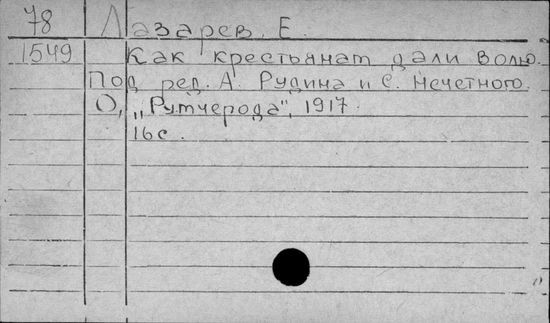 78 Лазарев. Е.
1549 Как крестьянам дали волю.
Под ред. А. Рудина и С. Нечетного.
О, „Рутчерода", 1917.
16 с.